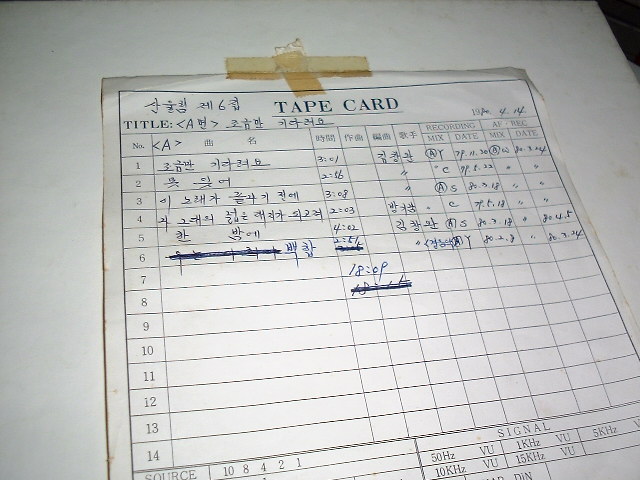 산울림 제6집 TAPE CARD 1980. 4. 14
TITLE: <A면> 조금만 기다려요
No. <A> 曲 名 時間 作曲 編曲 歌手 RECORDING MIX DATE AF. REC MIX DATE
1 조금만 기다려요 3:01 김창완 Ⓐ Y 79.11.30 Ⓐ W 80.3.24
2 못 잊어 2:56 〃 〃 C 79.5.22 〃 〃
3 이 노래가 끝나기 전에 3:08 〃 Ⓐ S 80.3.18 〃 〃
4 그대의 젊은 연인이 되고파 2:03 C 79.5.18 〃 〃
5 한 밤에 4:02 김창완 Ⓐ S 80.3.18 〃 80.4.5
6 백합 2:51 〃 Y 80.2.8 〃 80.3.24
7 18:09
8
9
10
11
12
13
14
SOURCE 10 8 4 2 1 SIGNAL
50Hz VU 1KHz VU 5KHz
10KHz VU 15KHz VU